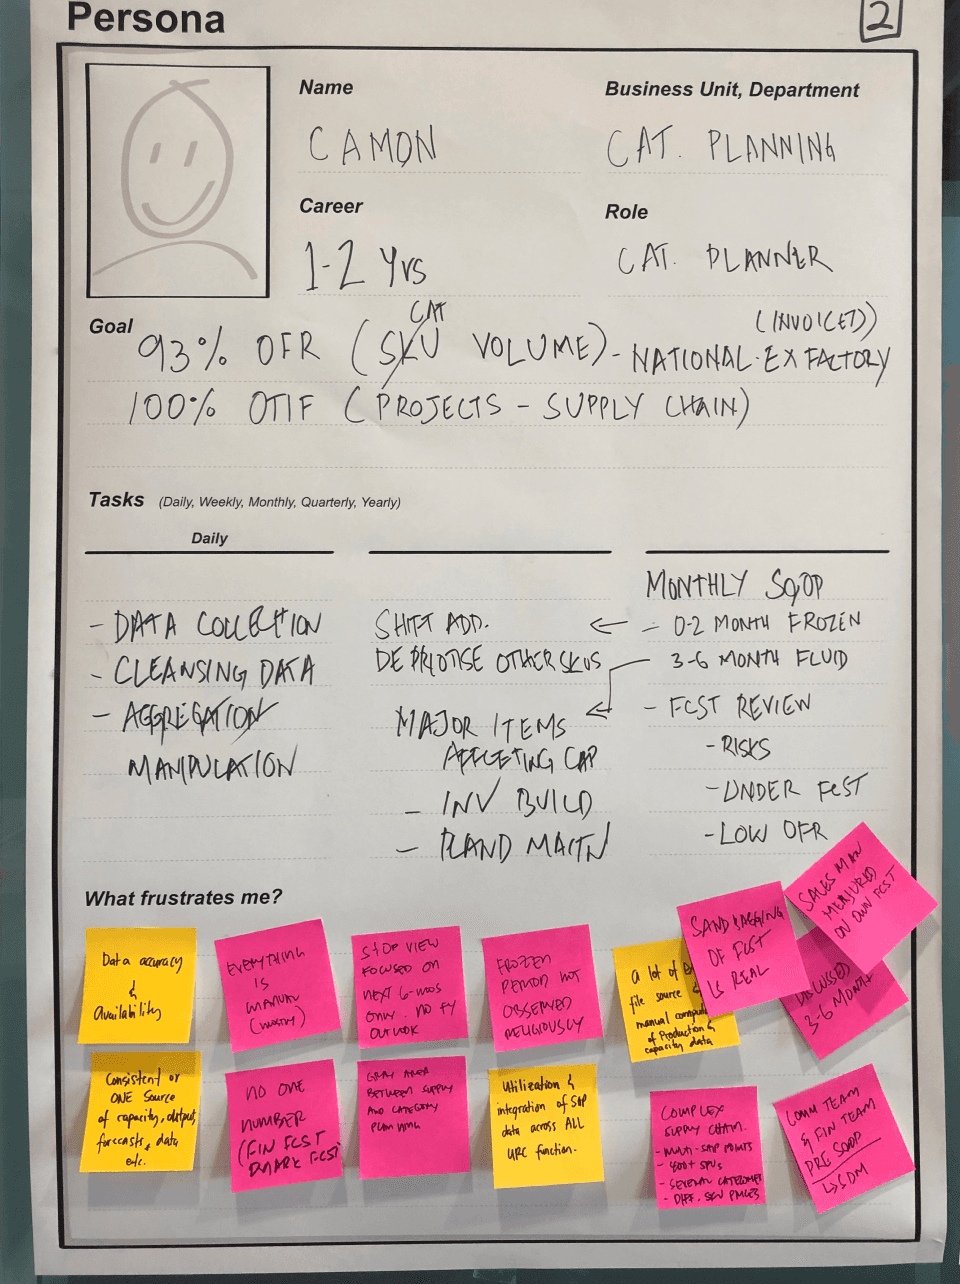 Persona
2
Name
CAMON
Business Unit, Department
CAT. PLANNING
Career
1-2 Yrs
Role
CAT. PLANNER
Goal
93% OFR (SKU CAT VOLUME) - NATIONAL-EX FACTORY (INVOICED)
100% OTIF (PROJECTS - SUPPLY CHAIN)
Tasks (Daily, Weekly, Monthly, Quarterly, Yearly)
Daily
- DATA COLLECTION
- CLEANSING DATA
- AGGREGATION
MANIPULATION
SHIFT ADD.
DE PRIOTISE OTHER SKUS
MAJOR ITEMS
AFFCETING CAP
- INV BUILD
- PLAND MAITN
MONTHLY S&OP
- 0-2 MONTH FROZEN
- 3-6 MONTH FLUID
- FCST REVIEW
- RISKS
- UNDER FCST
- LOW OFR
What frustrates me?
Data accuracy
&
availability
EVERYTHING
IS
MANUAL
(MOSTLY)
S&OP VIEW
FOCUSED ON
NEXT 6-MOS
ONLY. NO FY
OUTLOOK
FROZEN
PERIOD NOT
OBSERVED
RELIGIOUSLY
a lot of
file source
manual
of Production &
capacity data
SANDBAGGING
OF FCST
IS REAL
SALES MAN
MERSURED
ON OWN FCST
DISCUSSED
3-6 MONTH
Consistent or
ONE Source
of capacity, output,
forecasts, data
etc.
NO ONE
NUMBER
(FIN FCST
DMARK FCST)
GRAY AREA
BETWEEN SUPPLY
AND CATEGORY
PLANNING
Utilization &
integration of SAP
data across ALL
URC function.
COMPLEX
SUPPLY CHAIN.
- MULTI-SAP POINTS
- 400+ SKUs
- SEVERAL CATEGORIES
- DIFF. SKU
COMM TEAM
& FIN TEAM
PRE SOOP
SDM